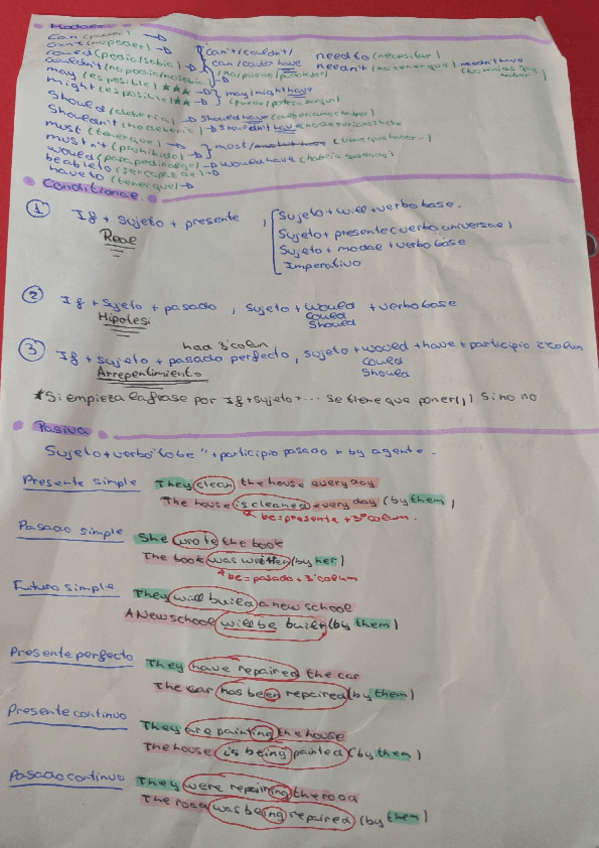 Modales
can (poder) →
can't (no poder) →
could (podia/sabia) → can't/couldn't/ need to (necesitar)
couldn't (no podia/no sabia) can/could have needn't (no tener que) needn't have
may (es posible) ★★★ → may/might have
might (es posible) ★★ →
should (deberia) → should have
shouldn't (no deberia) → shouldn't have
must (tener que) →
mustn't (prohibido) → must/mustn't have
would (para pedir algo) → would have (habria
be able to (ser capaz de) →
have to (tener que) →
Conditional
① If + sujeto + presente , Sujeto + will + verbo base.
Real
Sujeto + presente (verbo universal)
Sujeto + modal + verbo base
Imperativo
② If + sujeto + pasado , sujeto + would + verbo base
Hipotesi could
should
had 3ªcolum
③ If + sujeto + pasado perfecto, sujeto + would + have + participio 3ªcolum
Arrepentimiento could
should
*Si empieza la frase por If + sujeto + ... se tiene que poner (,) si no no
Pasiva
Sujeto + verbo "to be" + participio pasado + by agente.
Presente simple They clean the house every day
The house is cleaned every day (by them)
be = presente + 3ªcolum.
Pasado simple She wrote the book
The book was written (by her)
be = pasado + 3ªcolum
Futuro simple They will build a new school
A New school will be built (by them)
Presente perfecto They have repaired the car
The car has been repaired (by them)
Presente continuo They are painting the house
The house is being painted (by them)
Pasado continuo They were repairing the road
The road was being repaired (by them)